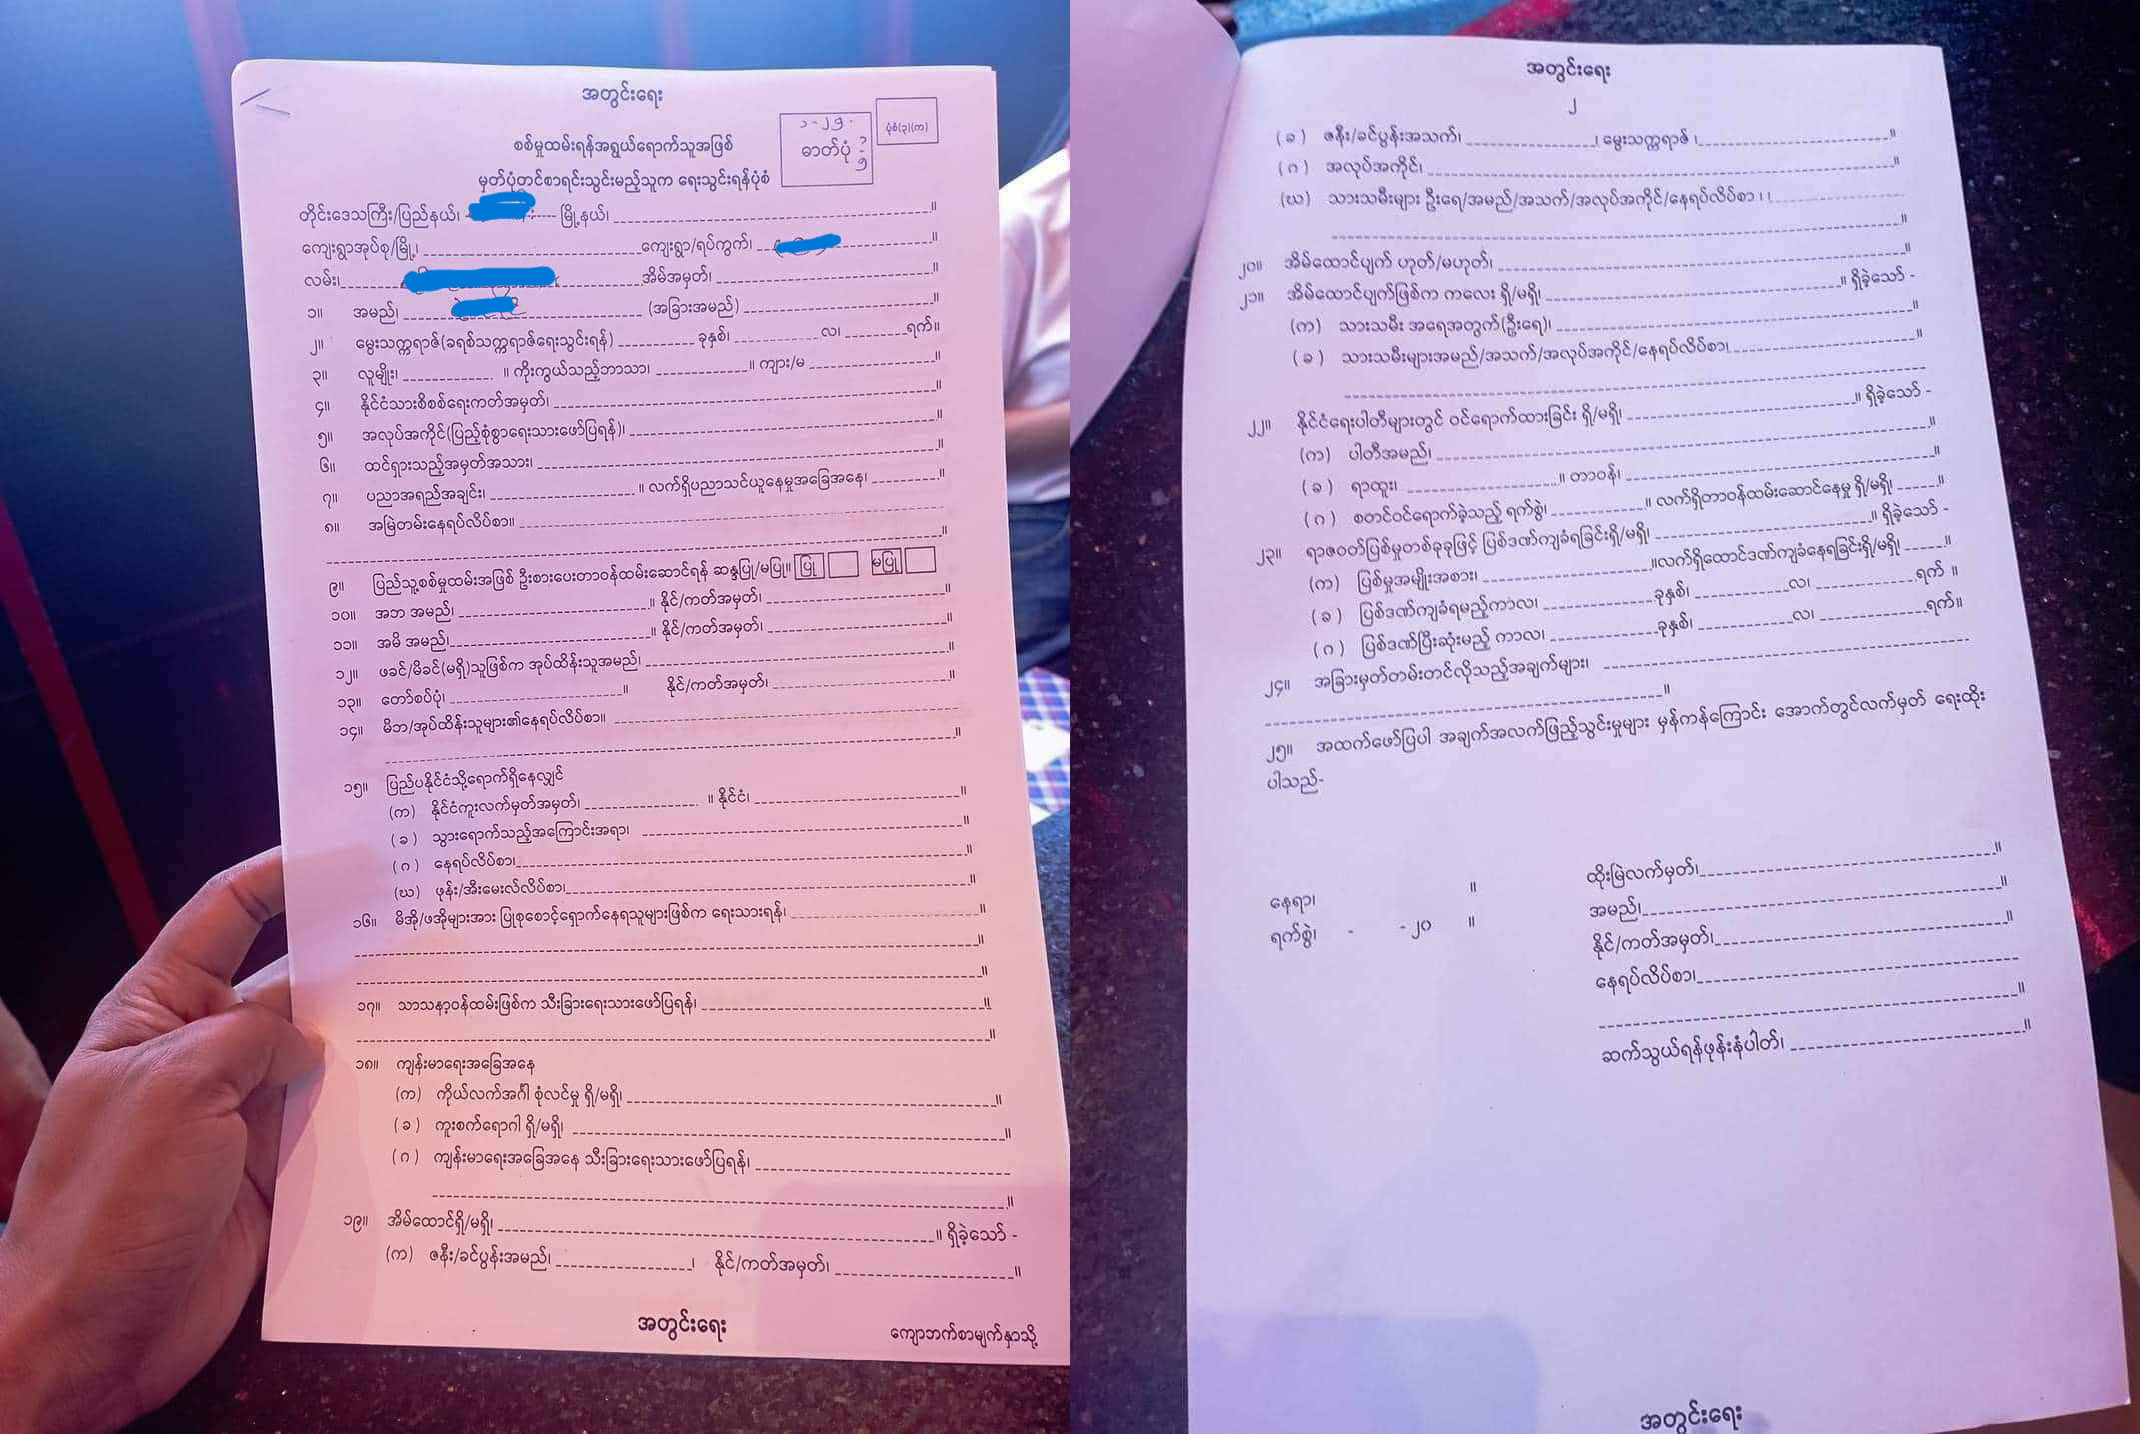 အတွင်းရေး
ပုံစံ(၃)(က)
ဓာတ်ပုံ
စစ်မှုထမ်းရန်အရွယ်ရောက်သူအဖြစ်
မှတ်ပုံတင်စာရင်းသွင်းမည့်သူက ရေးသွင်းရန်ပုံစံ
တိုင်းဒေသကြီး/ပြည်နယ်၊ မြို့နယ်၊ ။
ကျေးရွာအုပ်စု/မြို့၊ ကျေးရွာ/ရပ်ကွက်၊ ။
လမ်း၊ အိမ်အမှတ်၊ ။
၁။ အမည်၊ (အခြားအမည်) ။
၂။ မွေးသက္ကရာဇ်(ခရစ်သက္ကရာဇ်ရေးသွင်းရန်) ခုနှစ်၊ လ၊ ရက်။
၃။ လူမျိုး၊ ။ ကိုးကွယ်သည့်ဘာသာ၊ ။ ကျား/မ ။
၄။ နိုင်ငံသားစိစစ်ရေးကတ်အမှတ်၊ ။
၅။ အလုပ်အကိုင်(ပြည့်စုံစွာရေးသားဖော်ပြရန်)၊ ။
၆။ ထင်ရှားသည့်အမှတ်အသား၊ ။
၇။ ပညာအရည်အချင်း၊ ။ လက်ရှိပညာသင်ယူနေမှုအခြေအနေ၊ ။
၈။ အမြဲတမ်းနေရပ်လိပ်စာ။ ။
၉။ ပြည်သူ့စစ်မှုထမ်းအဖြစ် ဦးစားပေးတာဝန်ထမ်းဆောင်ရန် ဆန္ဒပြု/မပြု။ ပြု မပြု
၁၀။ အဘ အမည်၊ ။ နိုင်/ကတ်အမှတ်၊ ။
၁၁။ အမိ အမည်၊ ။ နိုင်/ကတ်အမှတ်၊ ။
၁၂။ ဖခင်/မိခင်(မရှိ)သူဖြစ်က အုပ်ထိန်းသူအမည်၊ ။
၁၃။ တော်စပ်ပုံ၊ ။ နိုင်/ကတ်အမှတ်၊ ။
၁၄။ မိဘ/အုပ်ထိန်းသူများ၏နေရပ်လိပ်စာ။ ။
၁၅။ ပြည်ပနိုင်ငံသို့ရောက်ရှိနေလျှင်
(က) နိုင်ငံကူးလက်မှတ်အမှတ်၊ ။ နိုင်ငံ၊ ။
(ခ) သွားရောက်သည့်အကြောင်းအရာ၊ ။
(ဂ) နေရပ်လိပ်စာ၊ ။
(ဃ) ဖုန်း/အီးမေးလ်လိပ်စာ၊ ။
၁၆။ မိအို/ဖအိုများအား ပြုစုစောင့်ရှောက်နေရသူများဖြစ်က ရေးသားရန်၊ ။
။
။
၁၇။ သာသနာ့ဝန်ထမ်းဖြစ်က သီးခြားရေးသားဖော်ပြရန်၊ ။
။
၁၈။ ကျန်းမာရေးအခြေအနေ
(က) ကိုယ်လက်အင်္ဂါ စုံလင်မှု ရှိ/မရှိ၊ ။
(ခ) ကူးစက်ရောဂါ ရှိ/မရှိ၊ ။
(ဂ) ကျန်းမာရေးအခြေအနေ သီးခြားရေးသားဖော်ပြရန်၊
။
၁၉။ အိမ်ထောင်ရှိ/မရှိ၊ ။ ရှိခဲ့သော် -
(က) ဇနီး/ခင်ပွန်းအမည်၊ ၊ နိုင်/ကတ်အမှတ်၊ ။
အတွင်းရေး
ကျောဘက်စာမျက်နှာသို့
အတွင်းရေး
၂
(ခ) ဇနီး/ခင်ပွန်းအသက်၊ ၊ မွေးသက္ကရာဇ် ၊ ။
(ဂ) အလုပ်အကိုင်၊ ။
(ဃ) သားသမီးများ ဦးရေ/အမည်/အသက်/အလုပ်အကိုင်/နေရပ်လိပ်စာ ၊ ၊
။
၂၀။ အိမ်ထောင်ပျက် ဟုတ်/မဟုတ်၊ ။
၂၁။ အိမ်ထောင်ပျက်ဖြစ်က ကလေး ရှိ/မရှိ၊ ။ ရှိခဲ့သော် -
(က) သားသမီး အရေအတွက်(ဦးရေ)၊ ။
(ခ) သားသမီးများအမည်/အသက်/အလုပ်အကိုင်/နေရပ်လိပ်စာ၊ ။
၂၂။ နိုင်ငံရေးပါတီများတွင် ဝင်ရောက်ထားခြင်း ရှိ/မရှိ၊ ။ ရှိခဲ့သော် -
(က) ပါတီအမည်၊ ။
(ခ) ရာထူး၊ ။ တာဝန်၊ ။
(ဂ) စတင်ဝင်ရောက်ခဲ့သည့် ရက်စွဲ၊ ။ လက်ရှိတာဝန်ထမ်းဆောင်နေမှု ရှိ/မရှိ၊ ။
၂၃။ ရာဇဝတ်ပြစ်မှုတစ်ခုခုဖြင့် ပြစ်ဒဏ်ကျခံရခြင်းရှိ/မရှိ၊ ။ ရှိခဲ့သော် -
(က) ပြစ်မှုအမျိုးအစား၊ ။လက်ရှိထောင်ဒဏ်ကျခံနေရခြင်းရှိ/မရှိ၊ ။
(ခ) ပြစ်ဒဏ်ကျခံရမည့်ကာလ၊ ခုနှစ်၊ လ၊ ရက် ။
(ဂ) ပြစ်ဒဏ်ပြီးဆုံးမည့် ကာလ၊ ခုနှစ်၊ လ၊ ရက်။
၂၄။ အခြားမှတ်တမ်းတင်လိုသည့်အချက်များ၊
။
၂၅။ အထက်ဖော်ပြပါ အချက်အလက်ဖြည့်သွင်းမှုများ မှန်ကန်ကြောင်း အောက်တွင်လက်မှတ် ရေးထိုး
ပါသည်-
ထိုးမြဲလက်မှတ်၊ ။
နေရာ၊ ။ အမည်၊ ။
ရက်စွဲ၊ - - ၂၀ ။ နိုင်/ကတ်အမှတ်၊ ။
နေရပ်လိပ်စာ၊
။
ဆက်သွယ်ရန်ဖုန်းနံပါတ်၊ ။
အတွင်းရေး